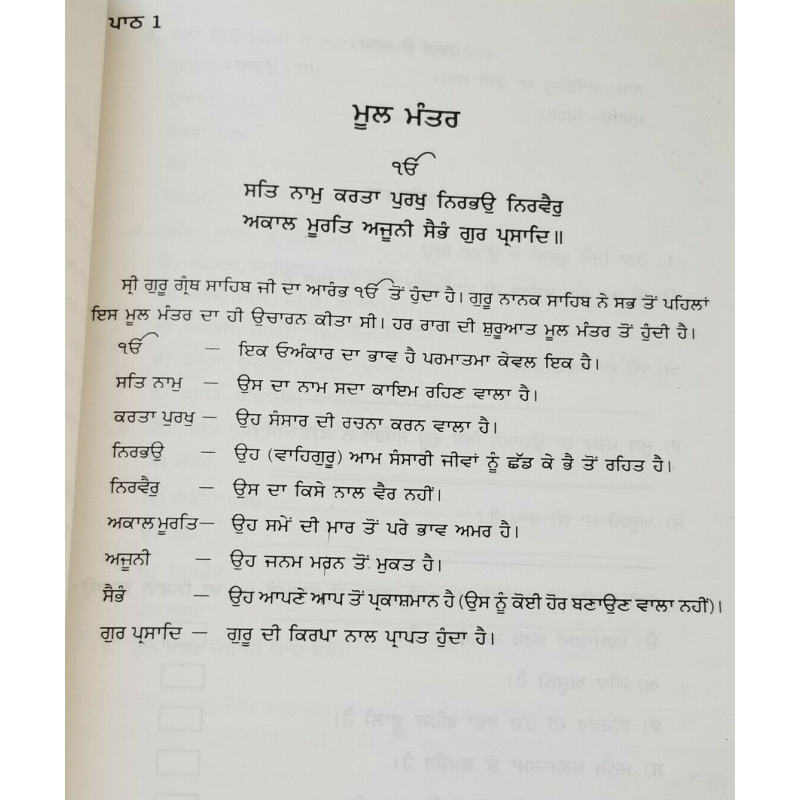 ਪਾਠ 1
ਮੂਲ ਮੰਤਰ
ੴ
ਸਤਿ ਨਾਮੁ ਕਰਤਾ ਪੁਰਖੁ ਨਿਰਭਉ ਨਿਰਵੈਰੁ
ਅਕਾਲ ਮੂਰਤਿ ਅਜੂਨੀ ਸੈਭੰ ਗੁਰ ਪ੍ਰਸਾਦਿ॥
ਸ੍ਰੀ ਗੁਰੂ ਗ੍ਰੰਥ ਸਾਹਿਬ ਜੀ ਦਾ ਆਰੰਭ ੴ ਤੋਂ ਹੁੰਦਾ ਹੈ। ਗੁਰੂ ਨਾਨਕ ਸਾਹਿਬ ਨੇ ਸਭ ਤੋਂ ਪਹਿਲਾਂ
ਇਸ ਮੂਲ ਮੰਤਰ ਦਾ ਹੀ ਉਚਾਰਨ ਕੀਤਾ ਸੀ। ਹਰ ਰਾਗ ਦੀ ਸ਼ੁਰੂਆਤ ਮੂਲ ਮੰਤਰ ਤੋਂ ਹੁੰਦੀ ਹੈ।
ੴ – ਇਕ ਓਅੰਕਾਰ ਦਾ ਭਾਵ ਹੈ ਪਰਮਾਤਮਾ ਕੇਵਲ ਇਕ ਹੈ।
ਸਤਿ ਨਾਮੁ – ਉਸ ਦਾ ਨਾਮ ਸਦਾ ਕਾਇਮ ਰਹਿਣ ਵਾਲਾ ਹੈ।
ਕਰਤਾ ਪੁਰਖੁ – ਉਹ ਸੰਸਾਰ ਦੀ ਰਚਨਾ ਕਰਨ ਵਾਲਾ ਹੈ।
ਨਿਰਭਉ – ਉਹ (ਵਾਹਿਗੁਰੂ) ਆਮ ਸੰਸਾਰੀ ਜੀਵਾਂ ਨੂੰ ਛੱਡ ਕੇ ਭੈ ਤੋਂ ਰਹਿਤ ਹੈ।
ਨਿਰਵੈਰੁ – ਉਸ ਦਾ ਕਿਸੇ ਨਾਲ ਵੈਰ ਨਹੀਂ।
ਅਕਾਲ ਮੂਰਤਿ– ਉਹ ਸਮੇਂ ਦੀ ਮਾਰ ਤੋਂ ਪਰੇ ਭਾਵ ਅਮਰ ਹੈ।
ਅਜੂਨੀ – ਉਹ ਜਨਮ ਮਰਨ ਤੋਂ ਮੁਕਤ ਹੈ।
ਸੈਭੰ – ਉਹ ਆਪਣੇ ਆਪ ਤੋਂ ਪ੍ਰਕਾਸ਼ਮਾਨ ਹੈ (ਉਸ ਨੂੰ ਕੋਈ ਹੋਰ ਬਣਾਉਣ ਵਾਲਾ ਨਹੀਂ)।
ਗੁਰ ਪ੍ਰਸਾਦਿ – ਗੁਰੂ ਦੀ ਕਿਰਪਾ ਨਾਲ ਪ੍ਰਾਪਤ ਹੁੰਦਾ ਹੈ।